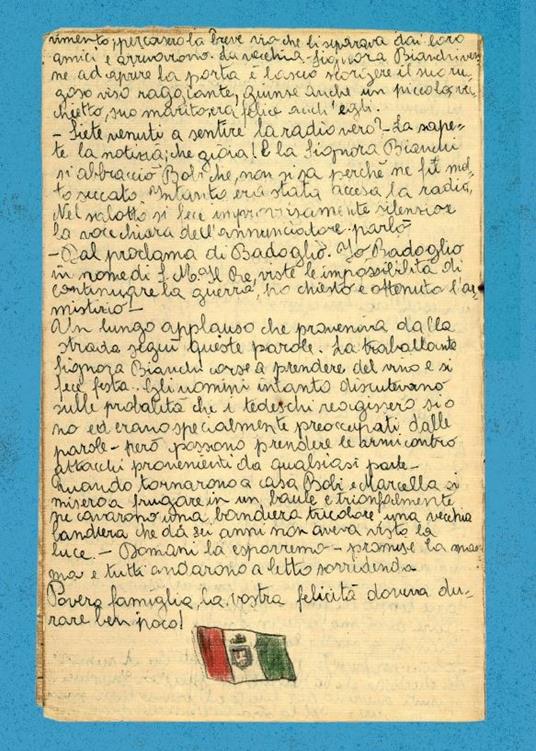 rimento, percorsero la breve via che li separava dai loro
amici e arrivarono. La vecchia Signora Bianchi ven-
ne ad aprire la porta e lasciò scorgere il suo ru-
goso viso raggiante, giunse anche un piccolo vec-
chietto, suo marito, era felice anch'egli.
- Siete venuti a sentire la radio vero? - La sape-
te la notizia; che gioia! E la Signora Bianchi
si abbracciò Bobi che, non si sa perchè ne fu mol-
to seccato. Intanto era stata accesa la radio,
Nel salotto si fece improvvisamente silenzio e
la voce chiara dell'annunciatore parlò
- Dal proclama di Badoglio. Io Badoglio
in nome di S. M. Il Re, viste le impossibilità di
continuare la guerra, ho chiesto e ottenuto l'ar-
mistizio -
Un lungo applauso che proveniva dalla
strada seguì queste parole. La traballante
Signora Bianchi corse a prendere del vino e si
fece festa. Gli uomini intanto discutevano
sulle probalità che i tedeschi reagissero sì o
no ed erano specialmente preoccupati dalle
parole - però possono prendere le armi contro
attacchi provenienti da qualsiasi parte -
Quando tornarono a casa Bobi e Marcella si
misero a frugare in un baule e trionfalmente
ne cavarono una bandiera tricolore, una vecchia
bandiera che da anni non aveva visto la
luce. - Domani la esporremo - promise la mam-
ma e tutti andarono a letto sorridendo
Povera famiglia, la vostra felicità doveva du-
rare ben poco!